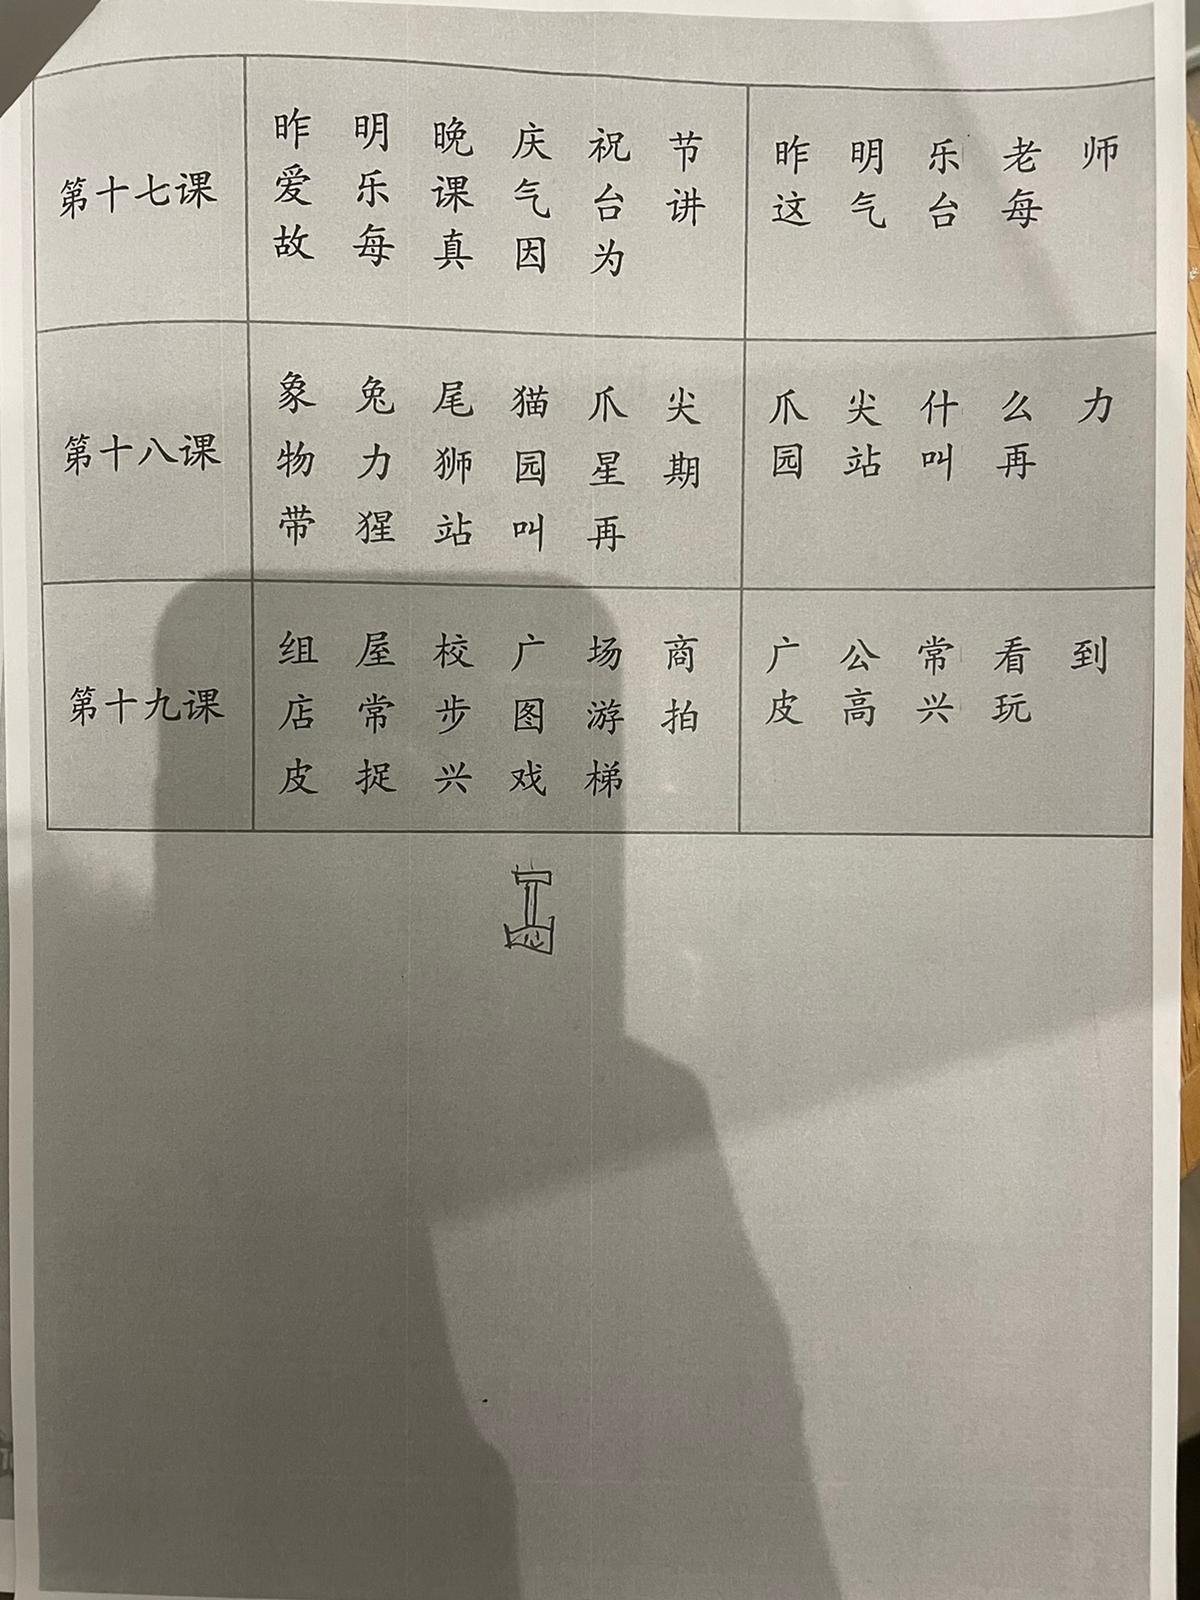 第十七课
昨 明 晚 庆 祝 节
爱 乐 课 气 台 讲
故 每 真 因 为
昨 明 乐 老 师
这 气 台 每
第十八课
象 兔 尾 猫 爪 尖
物 力 狮 园 星 期
带 猩 站 叫 再
爪 尖 什 么 力
园 站 叫 再
第十九课
组 屋 校 广 场 商
店 常 步 图 游 拍
皮 捉 兴 戏 梯
广 公 常 看 到
皮 高 兴 玩